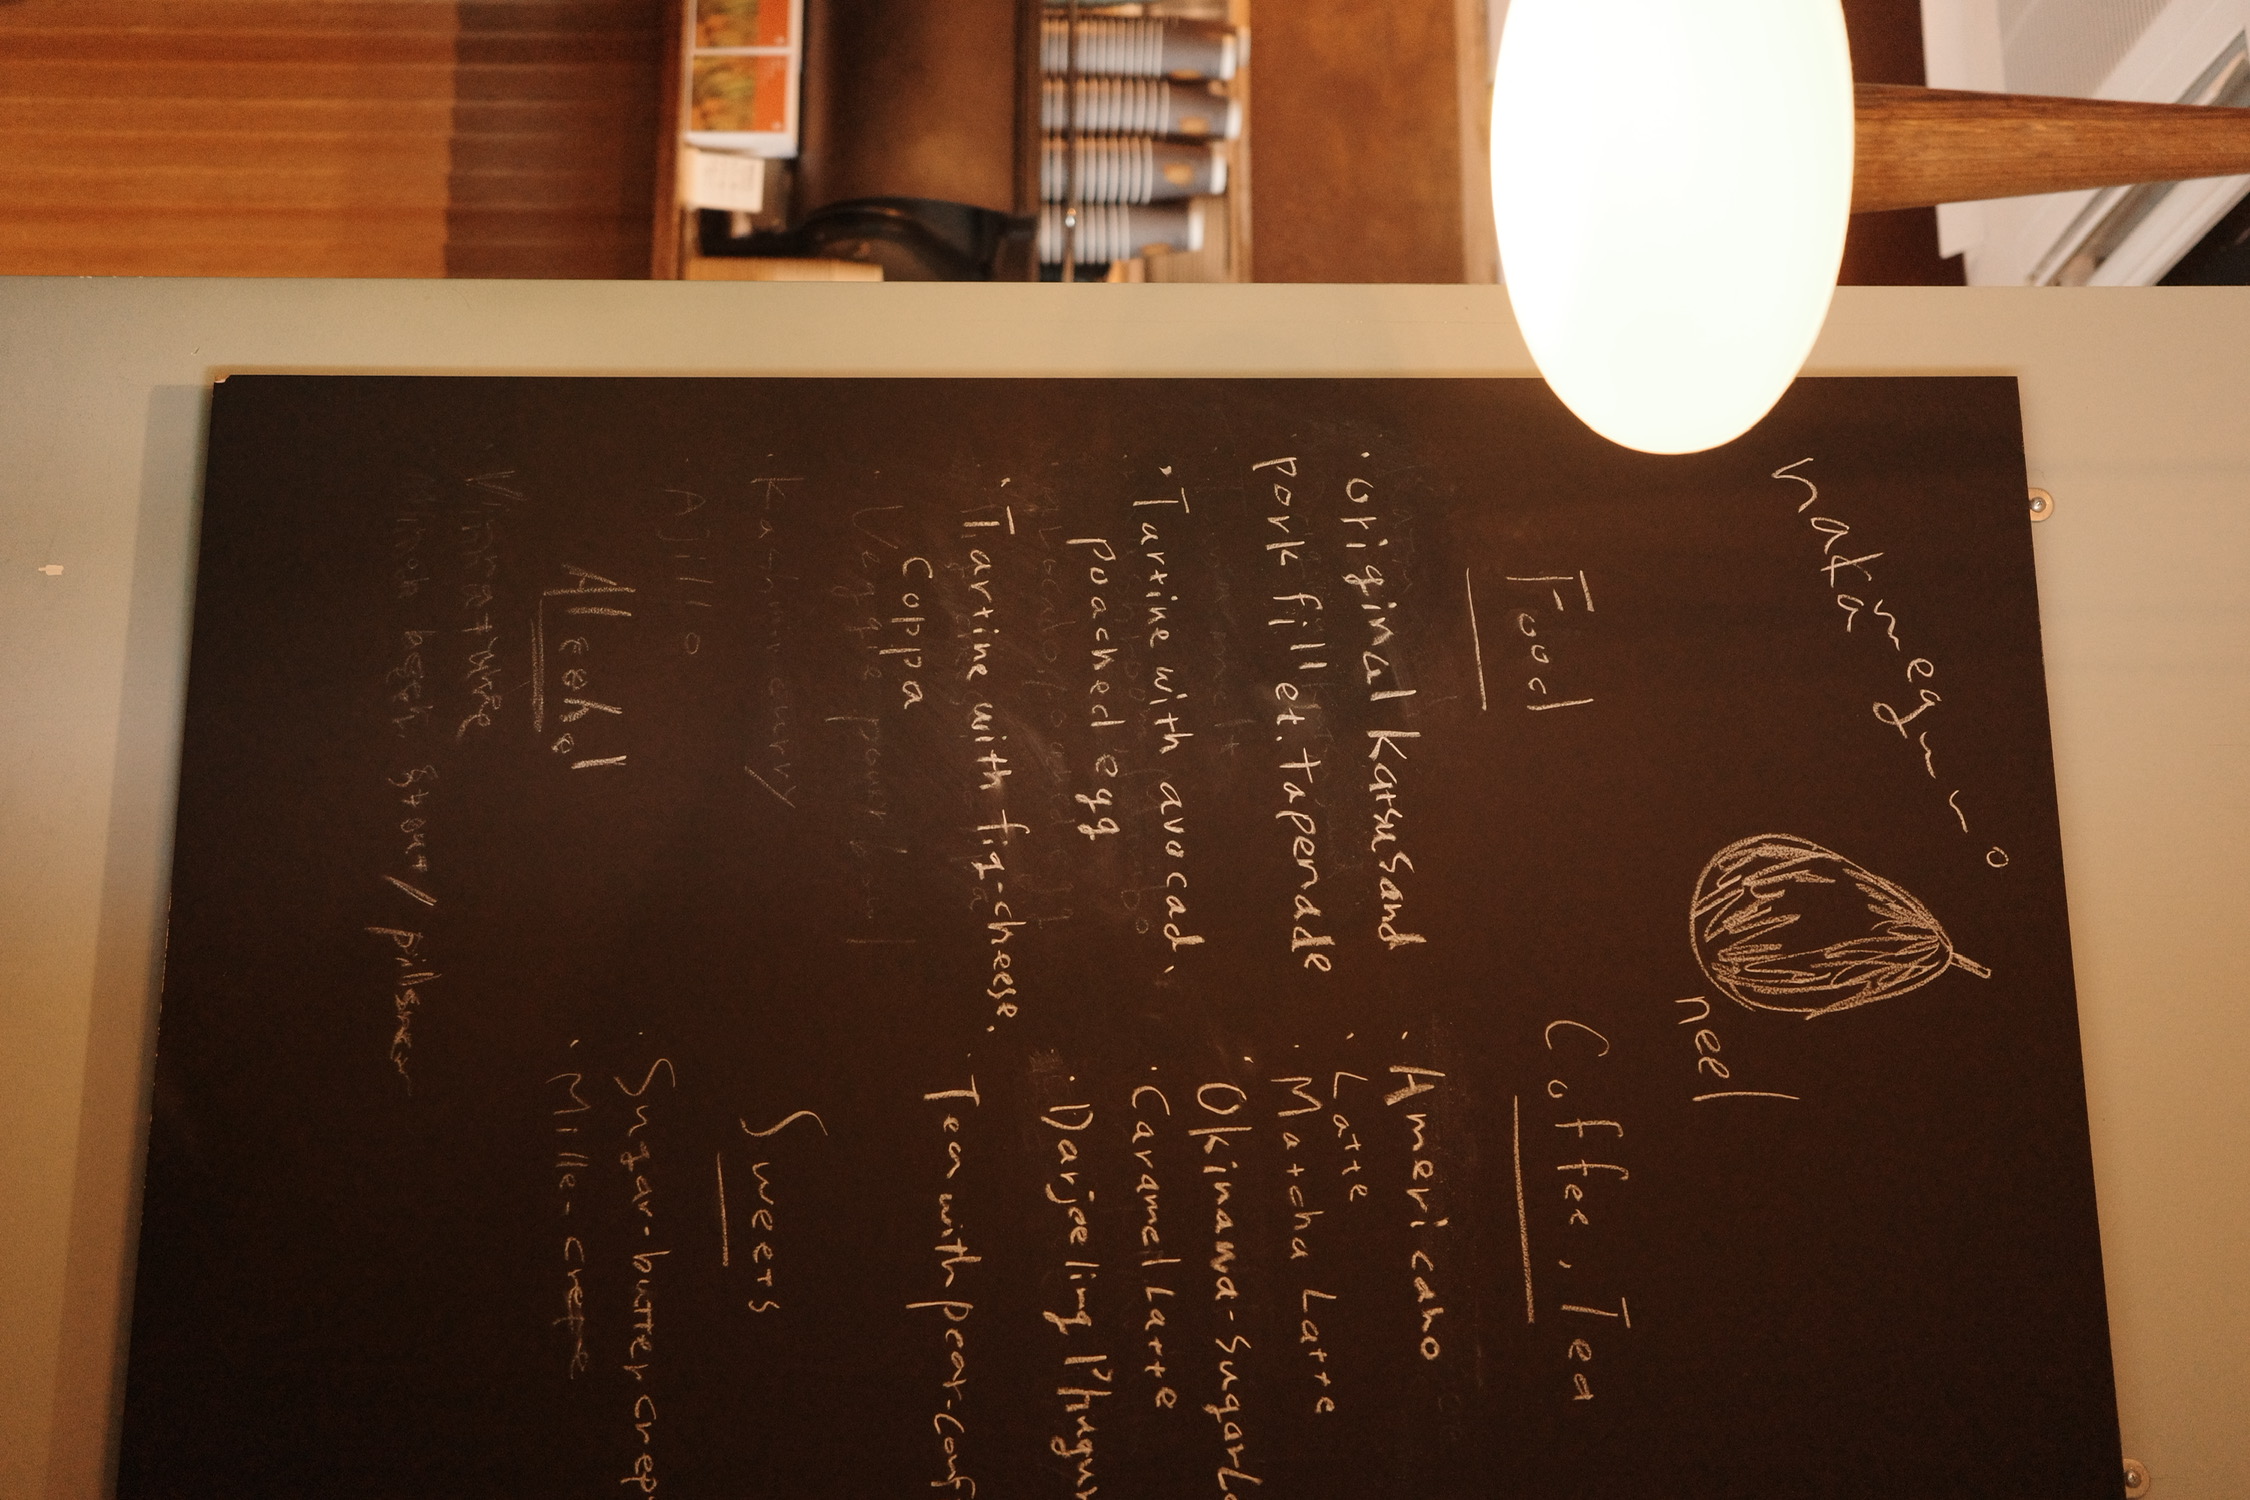 nakameguro
neel
Food
· Original Katsusand
pork fillet. tapenade
· Tartine with avocado.
poached egg
· Tartine with fig-cheese.
coppa
· Veggie pour bowl
· Ka-himcurry
Ajillo
Alcohol
Coffee, Tea
· Americano
· Latte
· Matcha Latte
· Okinawa-Sugar
· Caramel Latte
· Darjeeling
· Tea with pear-
Sweets
· Sugar-butter
· Mille-crepe